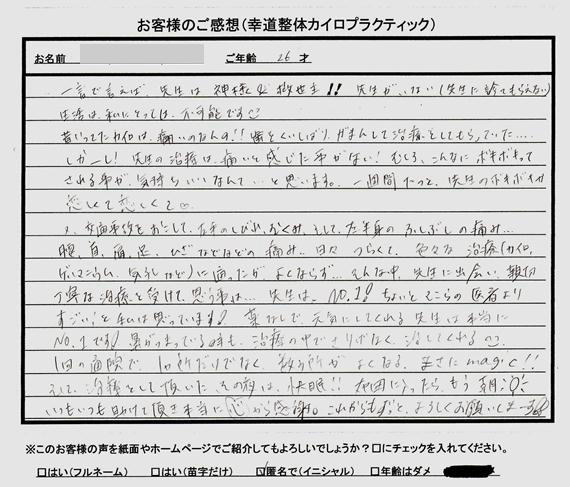 お客様のご感想(幸道整体カイロプラクティック)
お名前 ご年齢 26 才
一言で言えば、先生は 神様&救世主!! 先生がいない(先生に診てもらえない)
生活は、私にとっては、不可能です
昔いってたカイロは、痛いのなんの!! 歯をくいしばり、がまんして治療をしてもらっていた....
しかーし! 先生の治療は、痛いと感じた事がない! むしろ、こんなに ボキボキって
される事が、気持ちいいなんて...と思います。一週間たつと、先生のボキボキが
恋しくて恋しくて♡
交通事故をおこして、左手のしびれ、むくみ、そして、左半身のふしぶしの痛み...
腰、首、肩、足、ひざなどほどの痛み.. 日々 つらくて、色々な 治療(カイロ、
ゲルマニウム、気功 など)に通ったが よくならず... そんな中、先生に出会い、親切
丁寧な治療を受けて、思う事は... 先生は、NO.1! ちょいとそこらの医者より
すごい!と私は思っています! 薬なしで、元気にしてくれる先生は本当に
NO.1です! 鼻がつまってる時も、治療の中でさりげなく、治してくれる
1回の通院で、1ヶ所だけでなく、数ヶ所が よくなる、まさにmagic!!
そして、治療をして頂いた その夜は、快眠!! 布団に入ったら、もう朝
いつもいつも助けて頂き本当に 心から感謝。これからもずっと、よろしくお願いしまーす
※このお客様の声を紙面やホームページでご紹介してもよろしいでしょうか?□にチェックを入れてください。
□はい(フルネーム) □はい(苗字だけ) ☑匿名で(イニシャル) □年齢はダメ